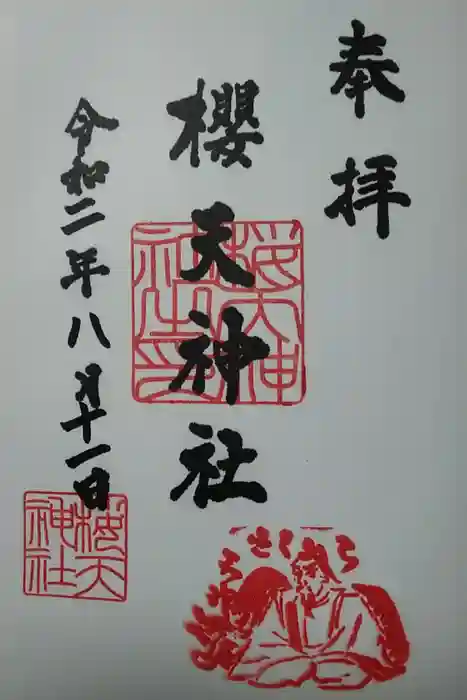 奉拝
櫻天神社
桜天神社之印
令和二年八月十一日
桜天神社
さくら